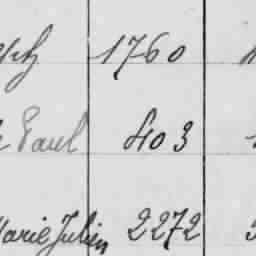 1760
Paul 403
Marie Julien 2272